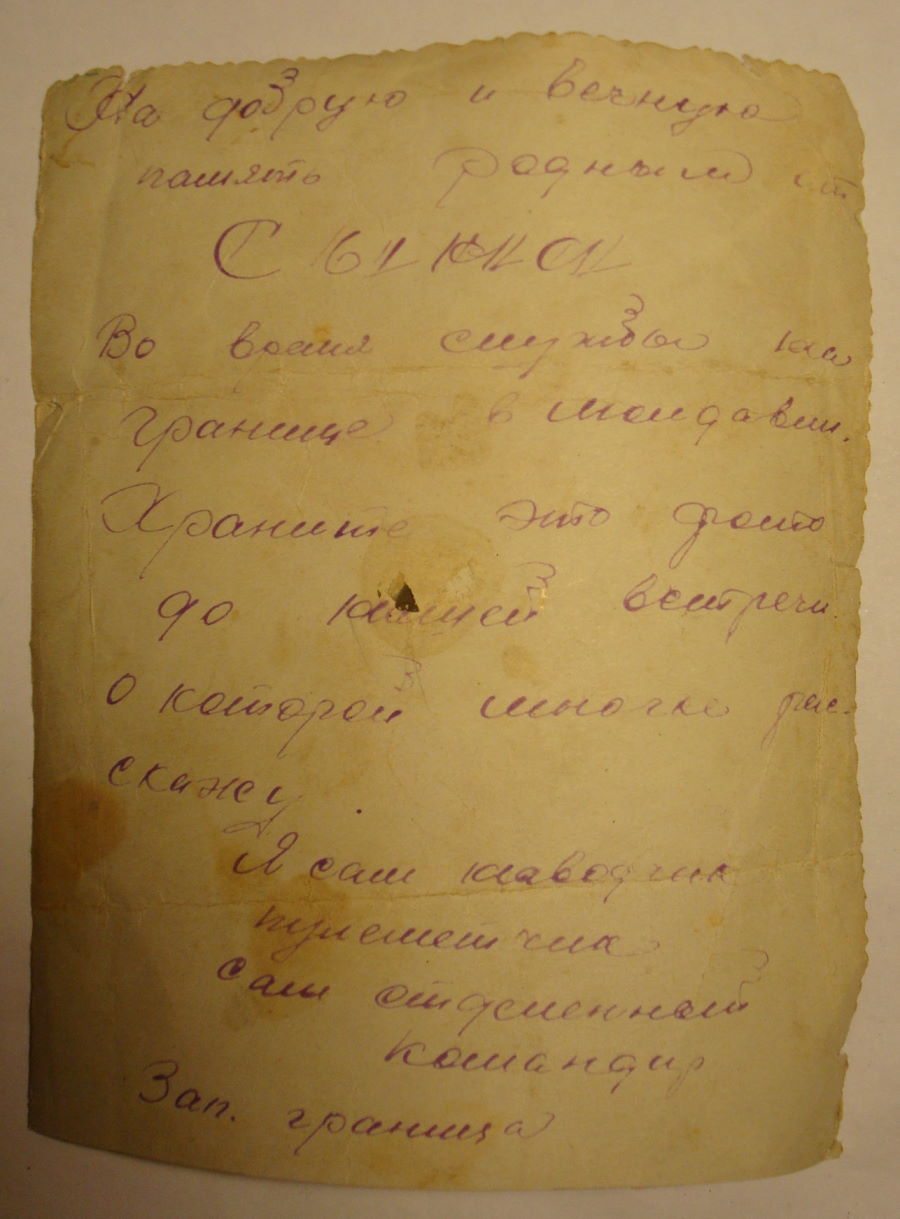 На добрую и вечную
память родным от
СЫНКА
Во время службы на
границе в Молдавии.
Храните это фото
до нашей встречи
о которой много рас-
скажу.
Я сам наводчик
пулеметчик
сам отделенный
командир
Зап. граница